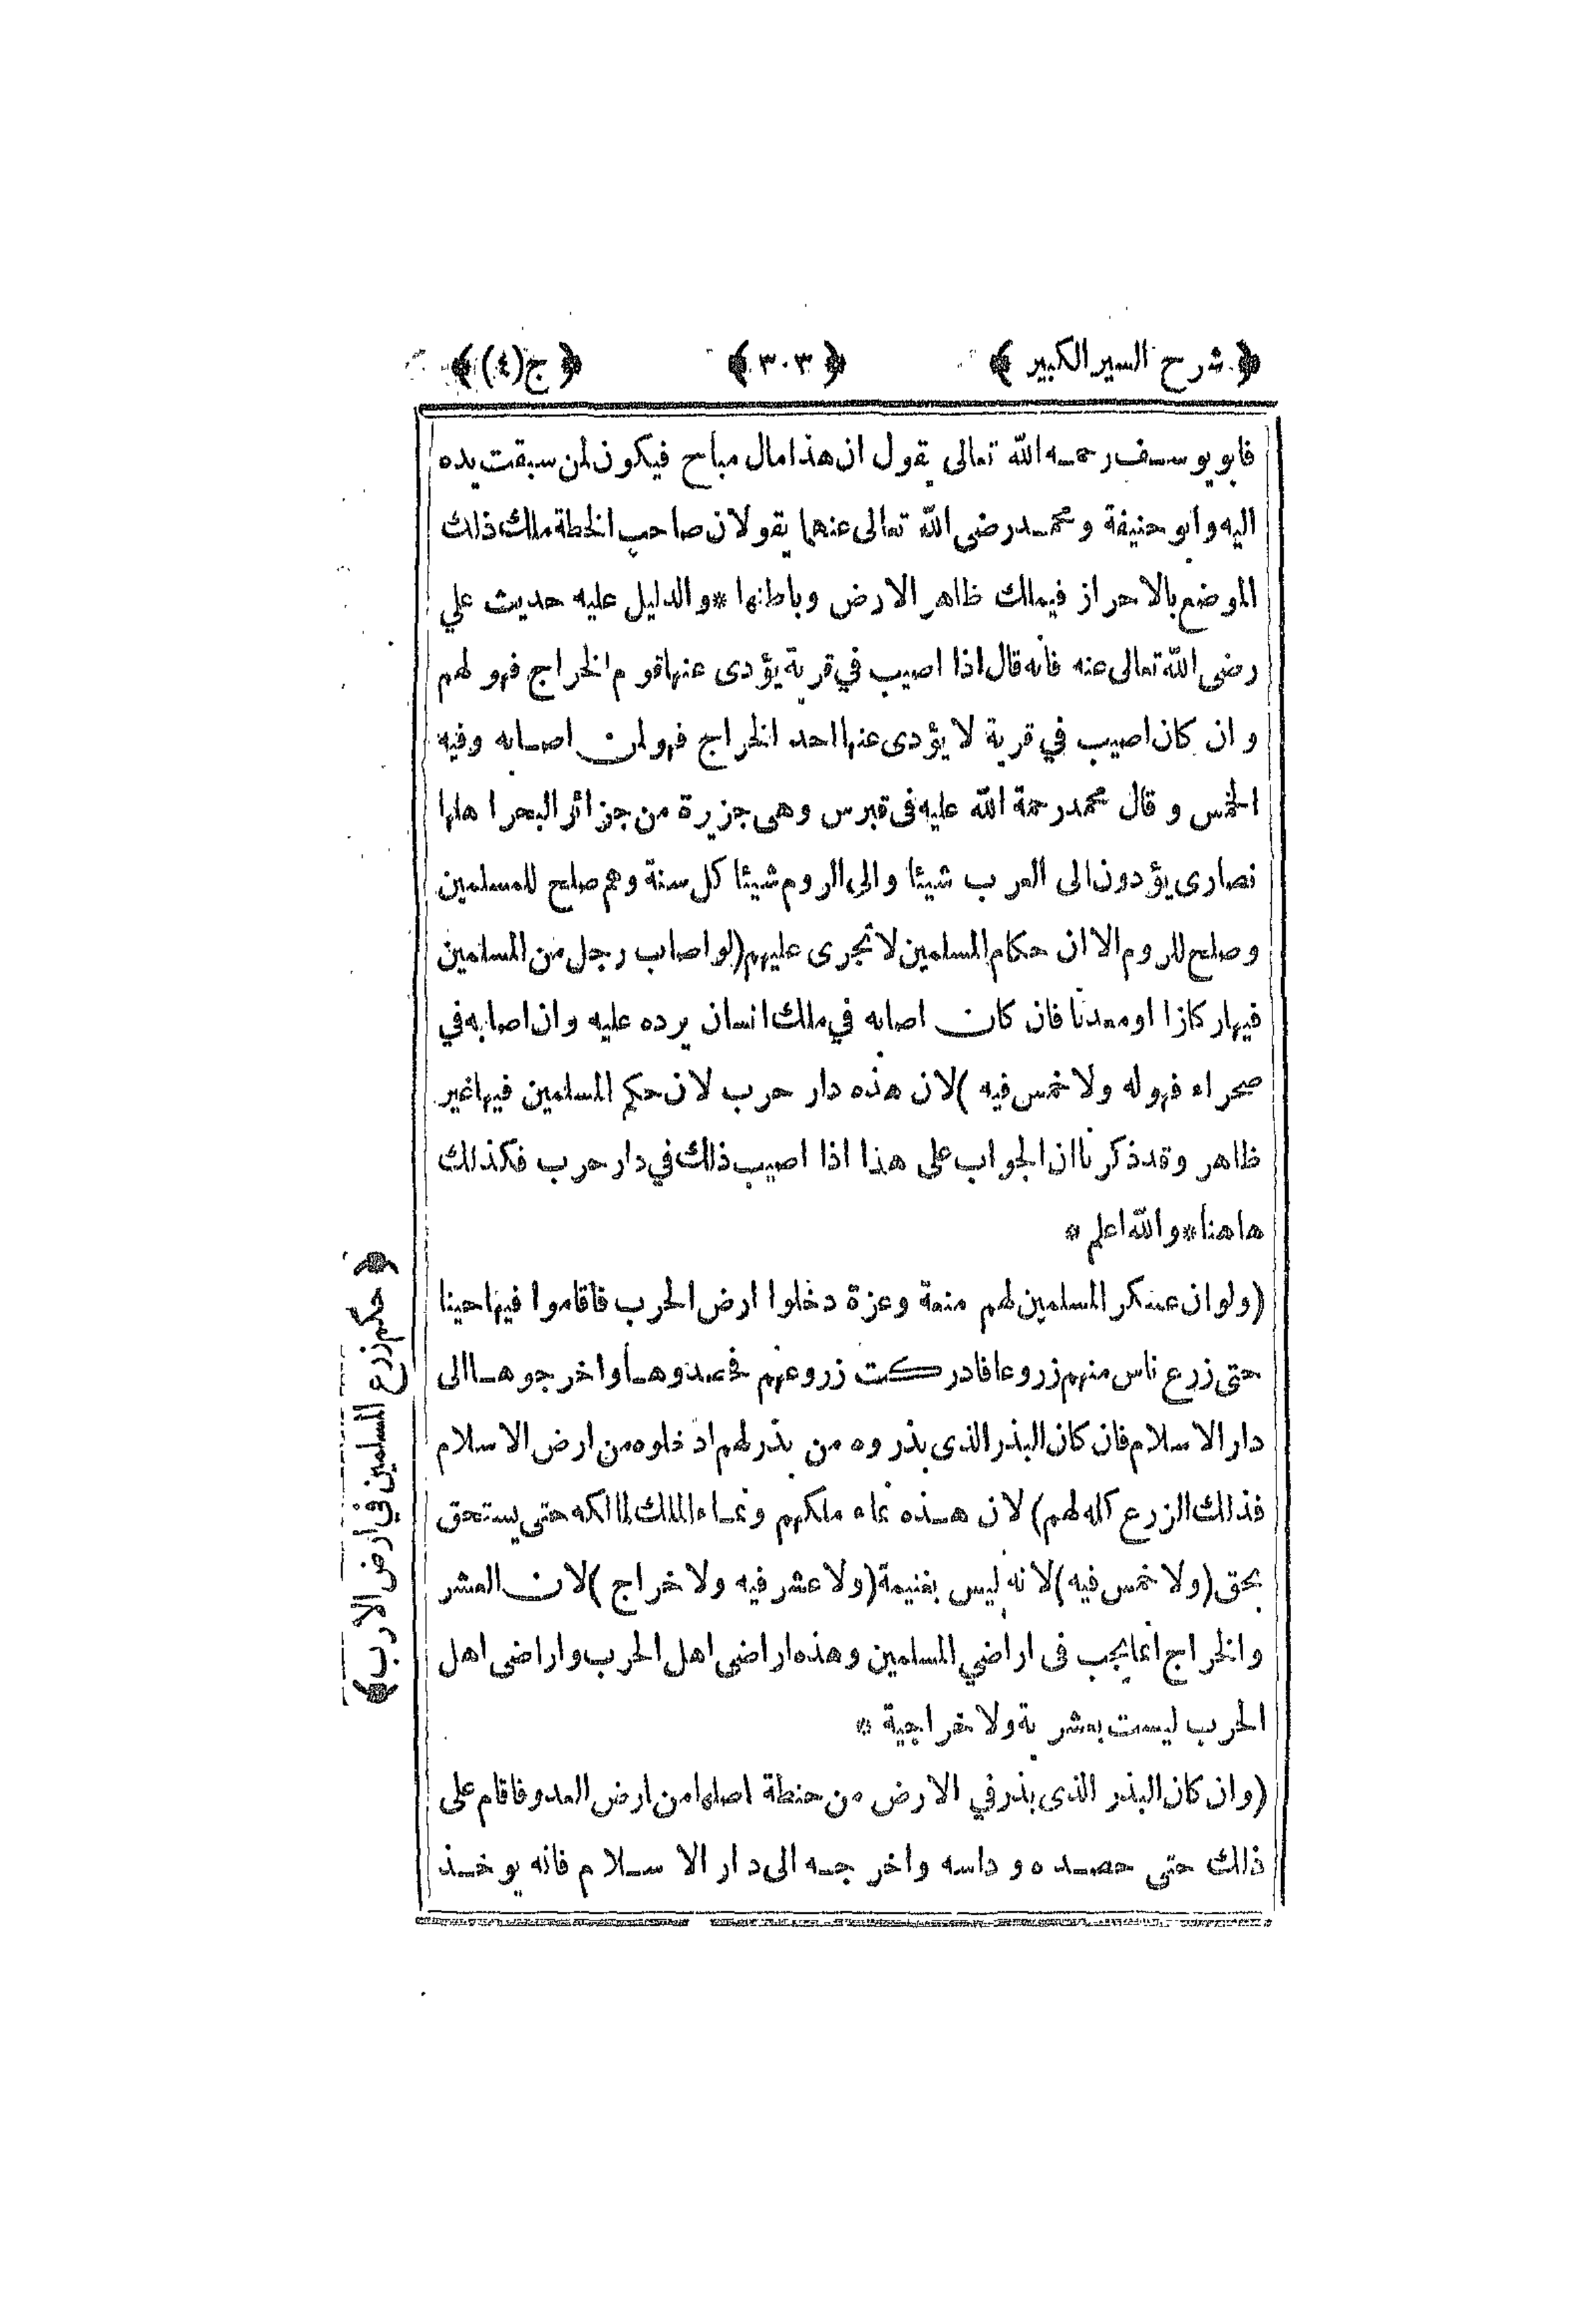 ﴿ شرح السير الكبير ﴾ ﴿ ٣٠٣ ﴾ ﴿ ج (٤) ﴾
فابو يوسف رحمه الله تعالى يقول ان هذا مال مباح فيكون لمن سبقت يده
اليه وابو حنيفة ومحمد رضى الله تعالى عنهما يقولان صاحب الخطة ملك ذلك
الموضع بالاحراز فيملك ظاهر الارض وباطنها * والدليل عليه حديث علي
رضى الله تعالى عنه فانه قال اذا اصيب في قرية يؤدى عنها قوم الخراج فهو لهم
وان كان اصيب في قرية لا يؤدى عنها احد الخراج فهو لمن اصابه وفيه
الخمس وقال محمد رحمة الله عليه فى قبرس وهى جزيرة من جزائر البحر اهلها
نصارى يؤدون الى العرب شيئا والى الروم شيئا كل سنة وهم صلح للمسلمين
وصلح للروم الا ان حكام المسلمين لا تجرى عليهم (لو اصاب رجل من المسلمين
فيها ركازا او معدنا فان كان اصابه في ملك انسان يرده عليه وان اصابه في
صحراء فهو له ولا خمس فيه) لان هذه دار حرب لان حكم المسلمين فيها غير
ظاهر وقد ذكرنا ان الجواب على هذا اذا اصيب ذلك في دار حرب فكذلك
هاهنا * والله اعلم *
(ولو ان عسكر المسلمين لهم منعة وعزة دخلوا ارض الحرب فاقاموا فيها حينا
حتى زرع ناس منهم زروعا فادركت زروعهم فحصدوها واخرجوها الى
دار الاسلام فان كان البذر الذى بذروه من بذر لهم ادخلوه من ارض الاسلام
فذلك الزرع كله لهم) لان هذه نماء ملكهم ونماء الملك لمالكه حتى يستحق
بحق (ولا خمس فيه) لانه ليس بغنيمة (ولا عشر فيه ولا خراج) لان العشر
والخراج انما يجب فى اراضي المسلمين وهذه اراضى اهل الحرب واراضى اهل
الحرب ليست بعشرية ولا خراجية *
(وان كان البذر الذى بذر في الارض من حنطة اصلها من ارض العدو فاقام على
ذلك حتى حصده وداسه واخرجه الى دار الاسلام فانه يوخذ
﴿ حكم زرع المسلمين في ارض الارب ﴾